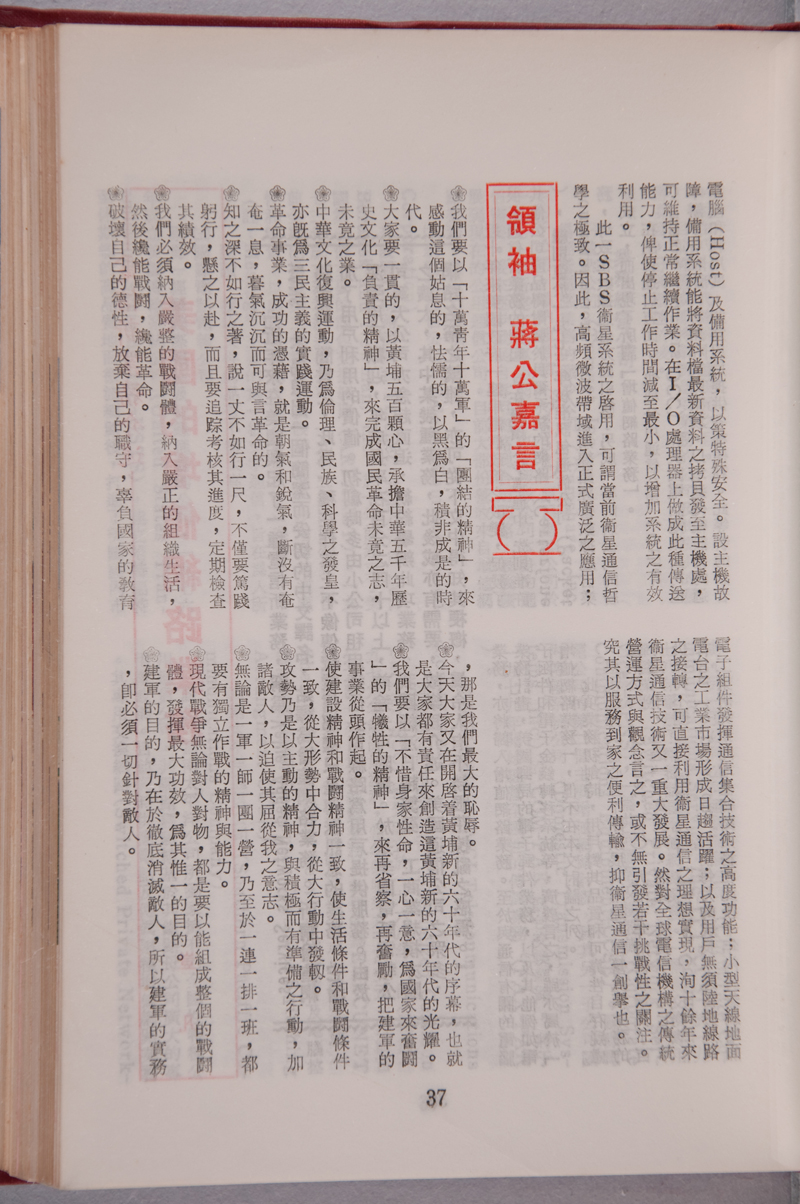 電腦（Host）及備用系統，以策特殊安全。設主機故
障，備用系統能將資料檔最新資料之拷貝發至主機處，
可維持正常繼續作業。在I／O處理器上做成此種傳送
能力，俾使停止工作時間減至最小，以增加系統之有效
利用。
此一SBS衞星系統之啓用，可謂當前衞星通信哲
學之極致。因此，高頻微波帶域進入正式廣泛之應用；
電子組件發揮通信集合技術之高度功能；小型天線地面
電台之工業市場形成日趨活躍；以及用戶無須陸地線路
之接轉，可直接利用衞星通信之理想實現，洵十餘年來
衞星通信技術又一重大發展。然對全球電信機構之傳統
營運方式與觀念言之，或不無引發若干挑戰性之關注。
究其以服務到家之便利傳輸，抑衞星通信一創擧也。
領袖 蔣公嘉言
我們要以「十萬靑年十萬軍」的「團結的精神」，來
感動這個姑息的，怯懦的，以黑爲白，積非成是的時
代。
大家要一貫的，以黃埔五百顆心，承擔中華五千年歷
史文化「負責的精神」，來完成國民革命未竟之志，
未竟之業。
中華文化復興運動，乃爲倫理、民族、科學之發皇，
亦旣爲三民主義的實踐運動。
革命事業，成功的憑藉，就是朝氣和銳氣，斷沒有奄
奄一息，暮氣沉沉而可與言革命的。
知之深不如行之著，說一丈不如行一尺，不僅要篤踐
躬行，懸之以赴，而且要追踪考核其進度，定期檢查
其績效。
我們必須納入嚴整的戰鬪體，納入嚴正的組織生活，
然後纔能戰鬪，纔能革命。
破壞自己的德性，放棄自己的職守，辜負國家的敎育
，那是我們最大的恥辱。
今天大家又在開啓着黃埔新的六十年代的序幕，也就
是大家都有責任來創造這黃埔新的六十年代的光耀。
我們要以「不惜身家性命，一心一意，爲國家來奮鬪
」的「犧牲的精神」，來再省察，再奮勵，把建軍的
事業從頭作起。
使建設精神和戰鬪精神一致，使生活條件和戰鬪條件
一致，從大形勢中合力，從大行動中發軔。
攻勢乃是以主動的精神，與積極而有準備之行動，加
諸敵人，以迫使其屈從我之意志。
無論是一軍一師一團一營，乃至於一連一排一班，都
要有獨立作戰的精神與能力。
現代戰爭無論對人對物，都是要以能組成整個的戰鬪
體，發揮最大功效，爲其惟一的目的。
建軍的目的，乃在於徹底消滅敵人，所以建軍的實務
，卽必須一切針對敵人。
37